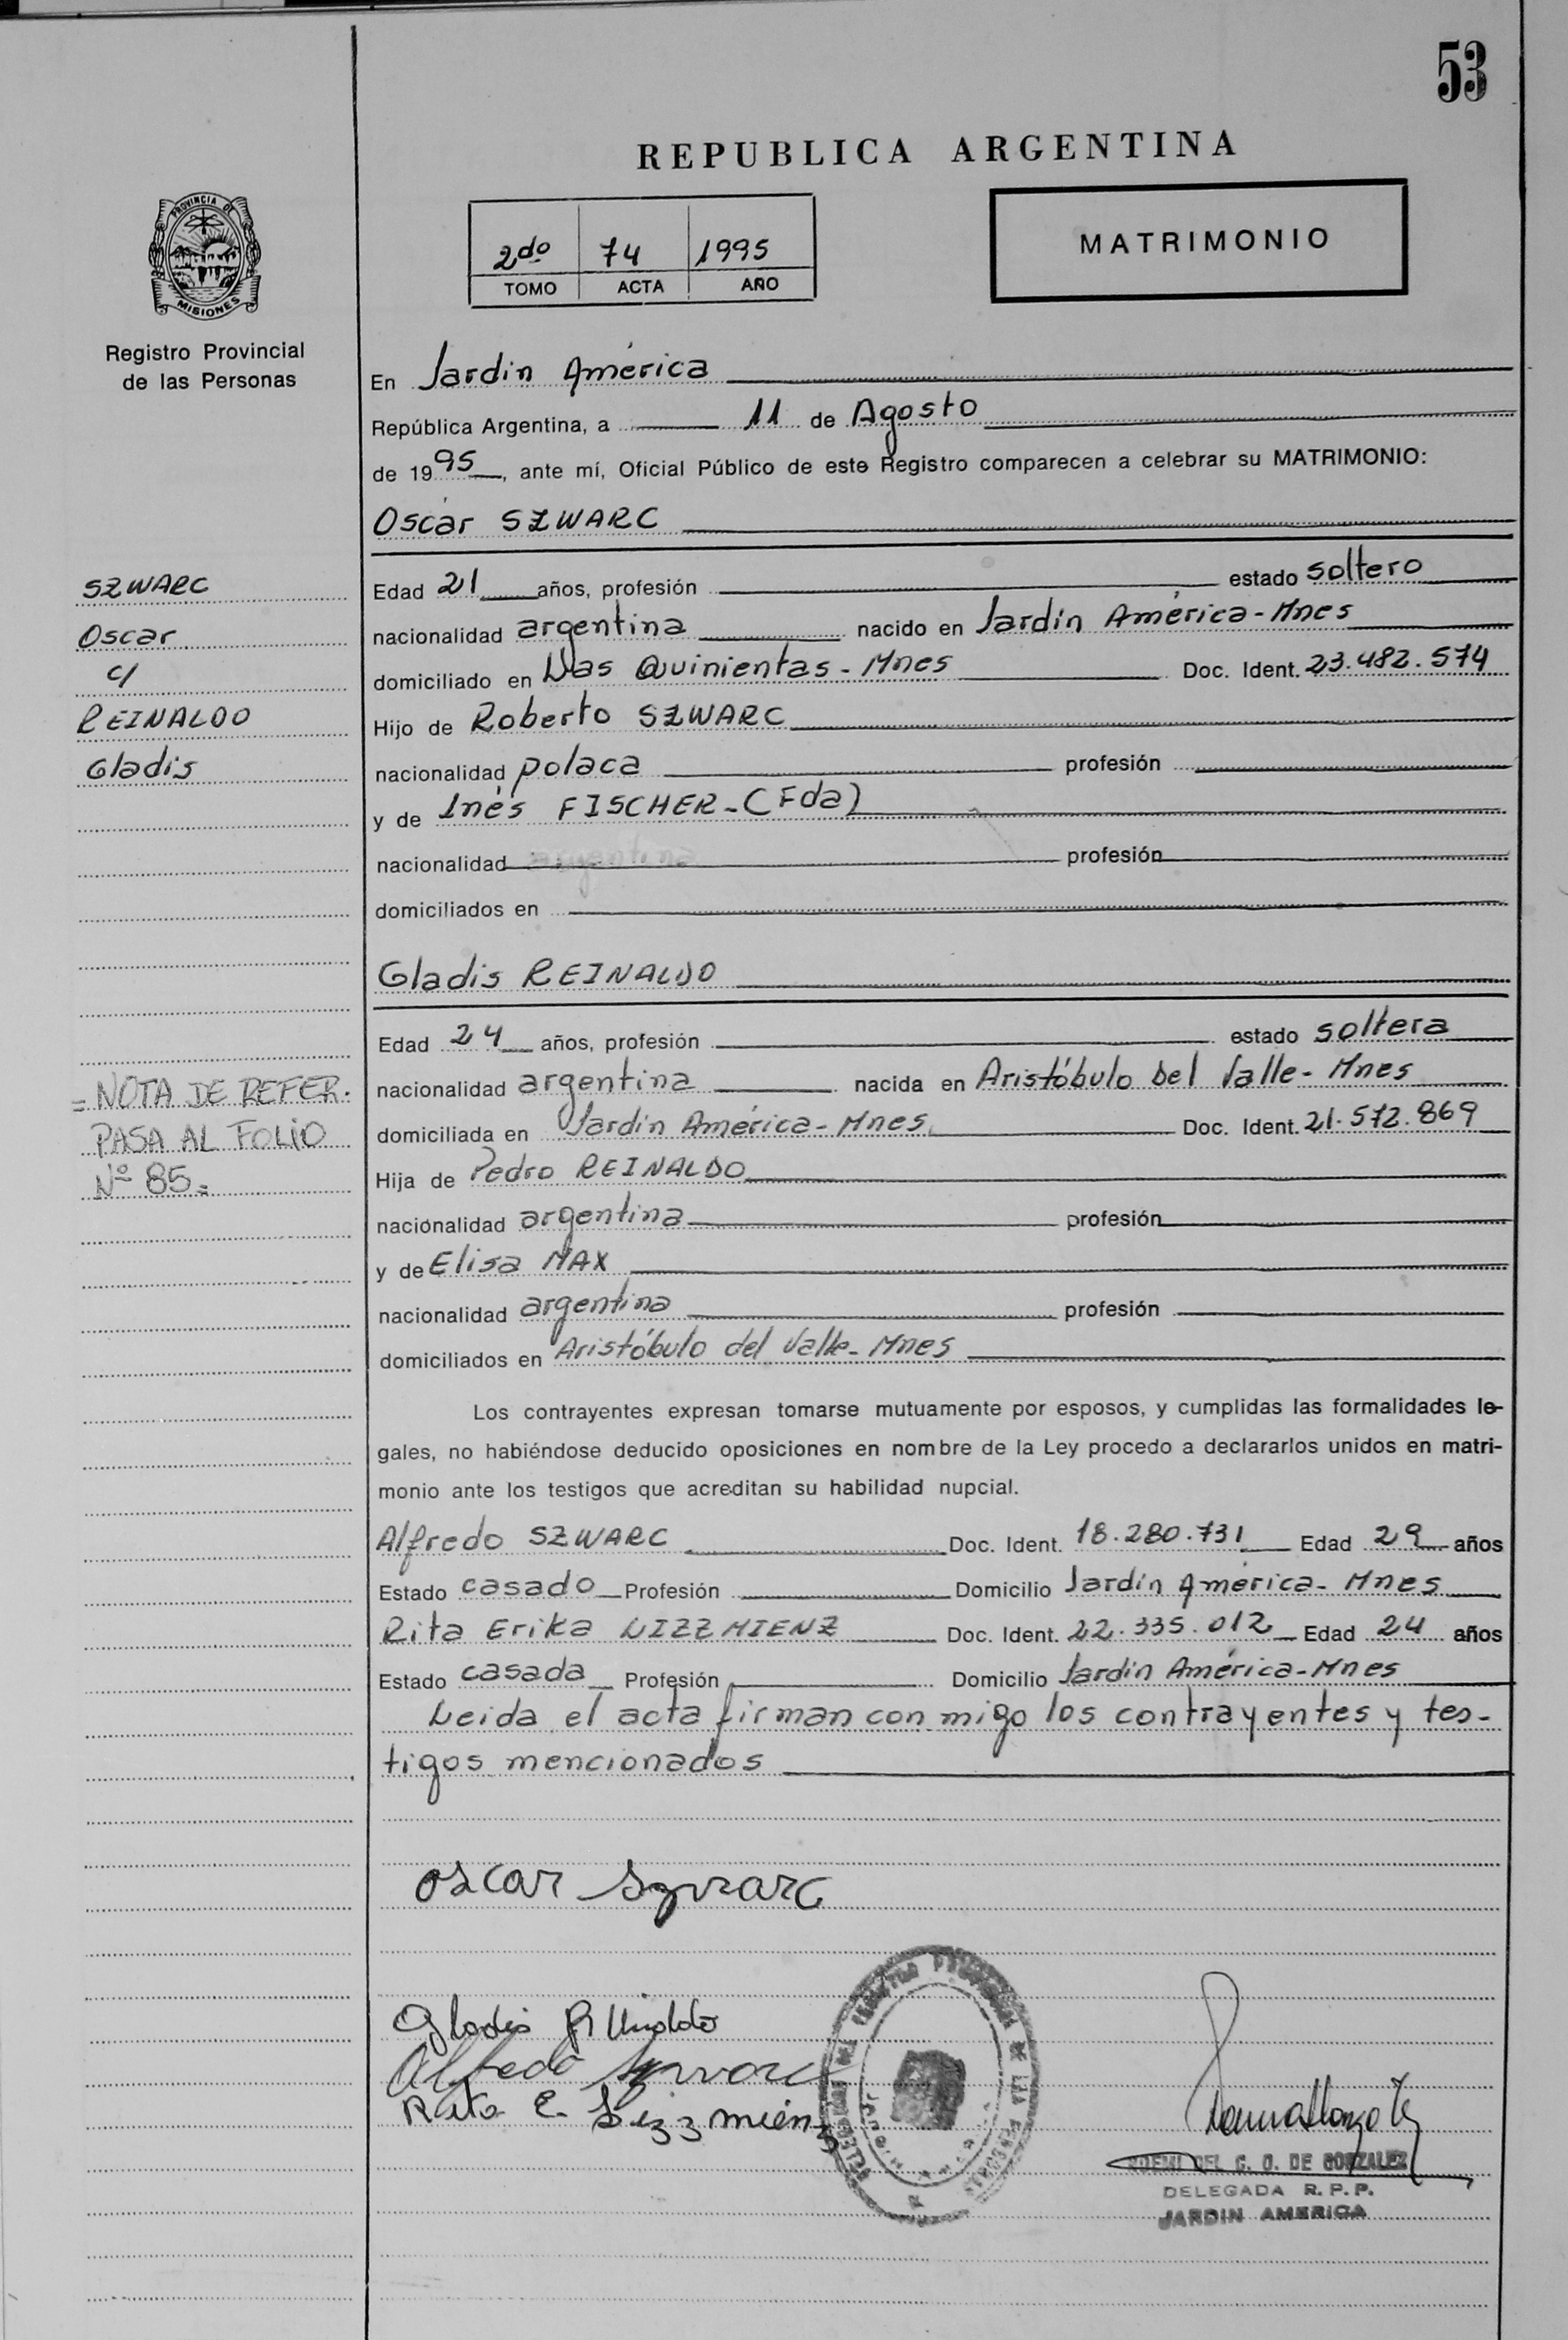 53
REPUBLICA ARGENTINA
PROVINCIA DE
MISIONES
Registro Provincial
de las Personas
2do 74 1995
TOMO ACTA AÑO
MATRIMONIO
En Jardín América
República Argentina, a 11 de Agosto
de 1995, ante mí, Oficial Público de este Registro comparecen a celebrar su MATRIMONIO:
Oscar SZWARC
SZWARC
Oscar
c/
REINALDO
Gladis
Edad 21 años, profesión estado soltero
nacionalidad argentina nacido en Jardín América-Mnes
domiciliado en Las Quinientas-Mnes Doc. Ident. 23.482.574
Hijo de Roberto SZWARC
nacionalidad polaca profesión
y de Inés FISCHER-(Fda)
nacionalidad argentina profesión
domiciliados en
Gladis REINALDO
Edad 24 años, profesión estado soltera
nacionalidad argentina nacida en Aristóbulo Del Valle-Mnes
domiciliada en Jardín América-Mnes Doc. Ident. 21.572.869
Hija de Pedro REINALDO
nacionalidad argentina profesión
y de Elisa MAX
nacionalidad argentina profesión
domiciliados en Aristóbulo del Valle-Mnes
=NOTA DE REFER.
PASA AL FOLIO
Nº 85=
Los contrayentes expresan tomarse mutuamente por esposos, y cumplidas las formalidades le-
gales, no habiéndose deducido oposiciones en nombre de la Ley procedo a declararlos unidos en matri-
monio ante los testigos que acreditan su habilidad nupcial.
Alfredo SZWARC Doc. Ident. 18.280.731 Edad 29 años
Estado casado Profesión Domicilio Jardín América-Mnes
Rita Erika LIZZMIENZ Doc. Ident. 22.335.012 Edad 24 años
Estado casada Profesión Domicilio Jardín América-Mnes
Leida el acta firman con migo los contrayentes y tes-
tigos mencionados
Oscar Szwarc
Gladis Reinaldo
Alfredo Szwarc
Rita E. Lizzmienz
DEL C. O. DE GONZALEZ
DELEGADA R.P.P.
JARDIN AMERICA